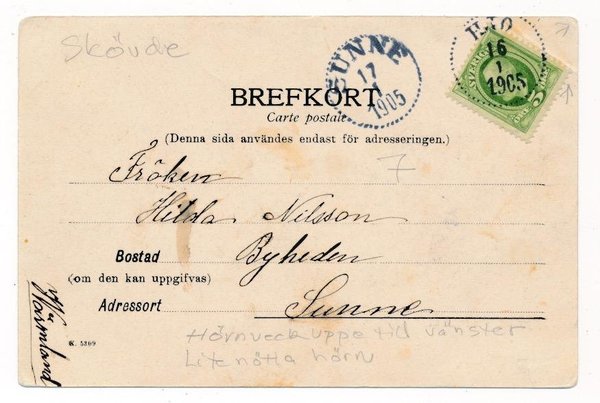 Skövde
SUNNE
17
1
1905
HJO
16
1
1905
BREFKORT
Carte postale
(Denna sida användes endast för adresseringen.)
7
Fröken
Hilda Nilsson
Bostad Byheden
(om den kan uppgifvas)
Adressort Sunne
Wärmland
K. 5369
Hörnveck uppe till vänster
Lite nötta hörn